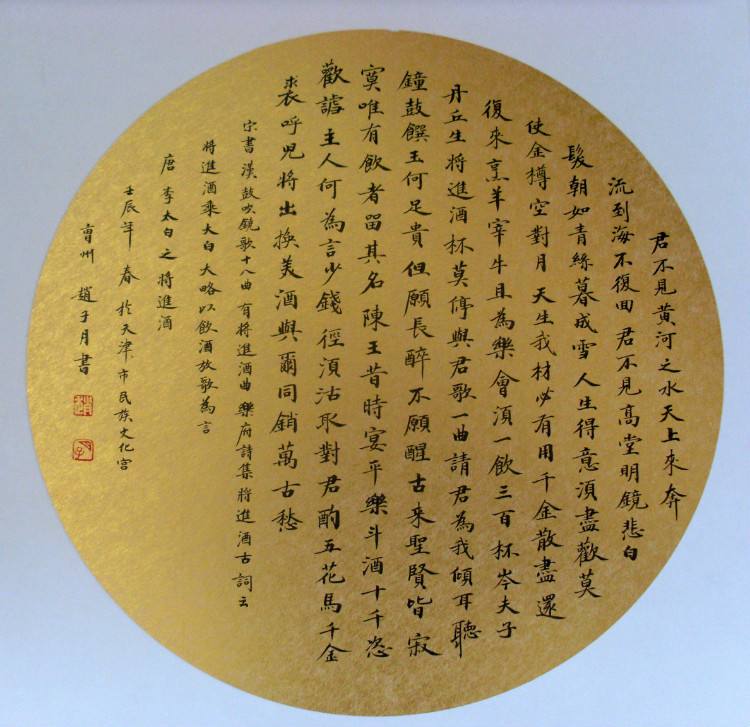 君不見黃河之水天上來奔
流到海不復回君不見高堂明鏡悲白
髮朝如青絲暮成雪人生得意須盡歡莫
使金樽空對月天生我材必有用千金散盡還
復來烹羊宰牛且為樂會須一飲三百杯岑夫子
丹丘生將進酒杯莫停與君歌一曲請君為我傾耳聽
鐘鼓饌玉何足貴但願長醉不願醒古來聖賢皆寂
寞唯有飲者留其名陳王昔時宴平樂斗酒十千恣
歡謔主人何為言少錢徑須沽取對君酌五花馬千金
裘呼兒將出換美酒與爾同銷萬古愁
宋書漢鼓吹鐃歌十八曲有將進酒曲樂府詩集將進酒古詞云
將進酒乘大白大略以飲酒放歌為言
唐李太白之將進酒
壬辰年春於天津市民族文化宮
曹州趙子月書